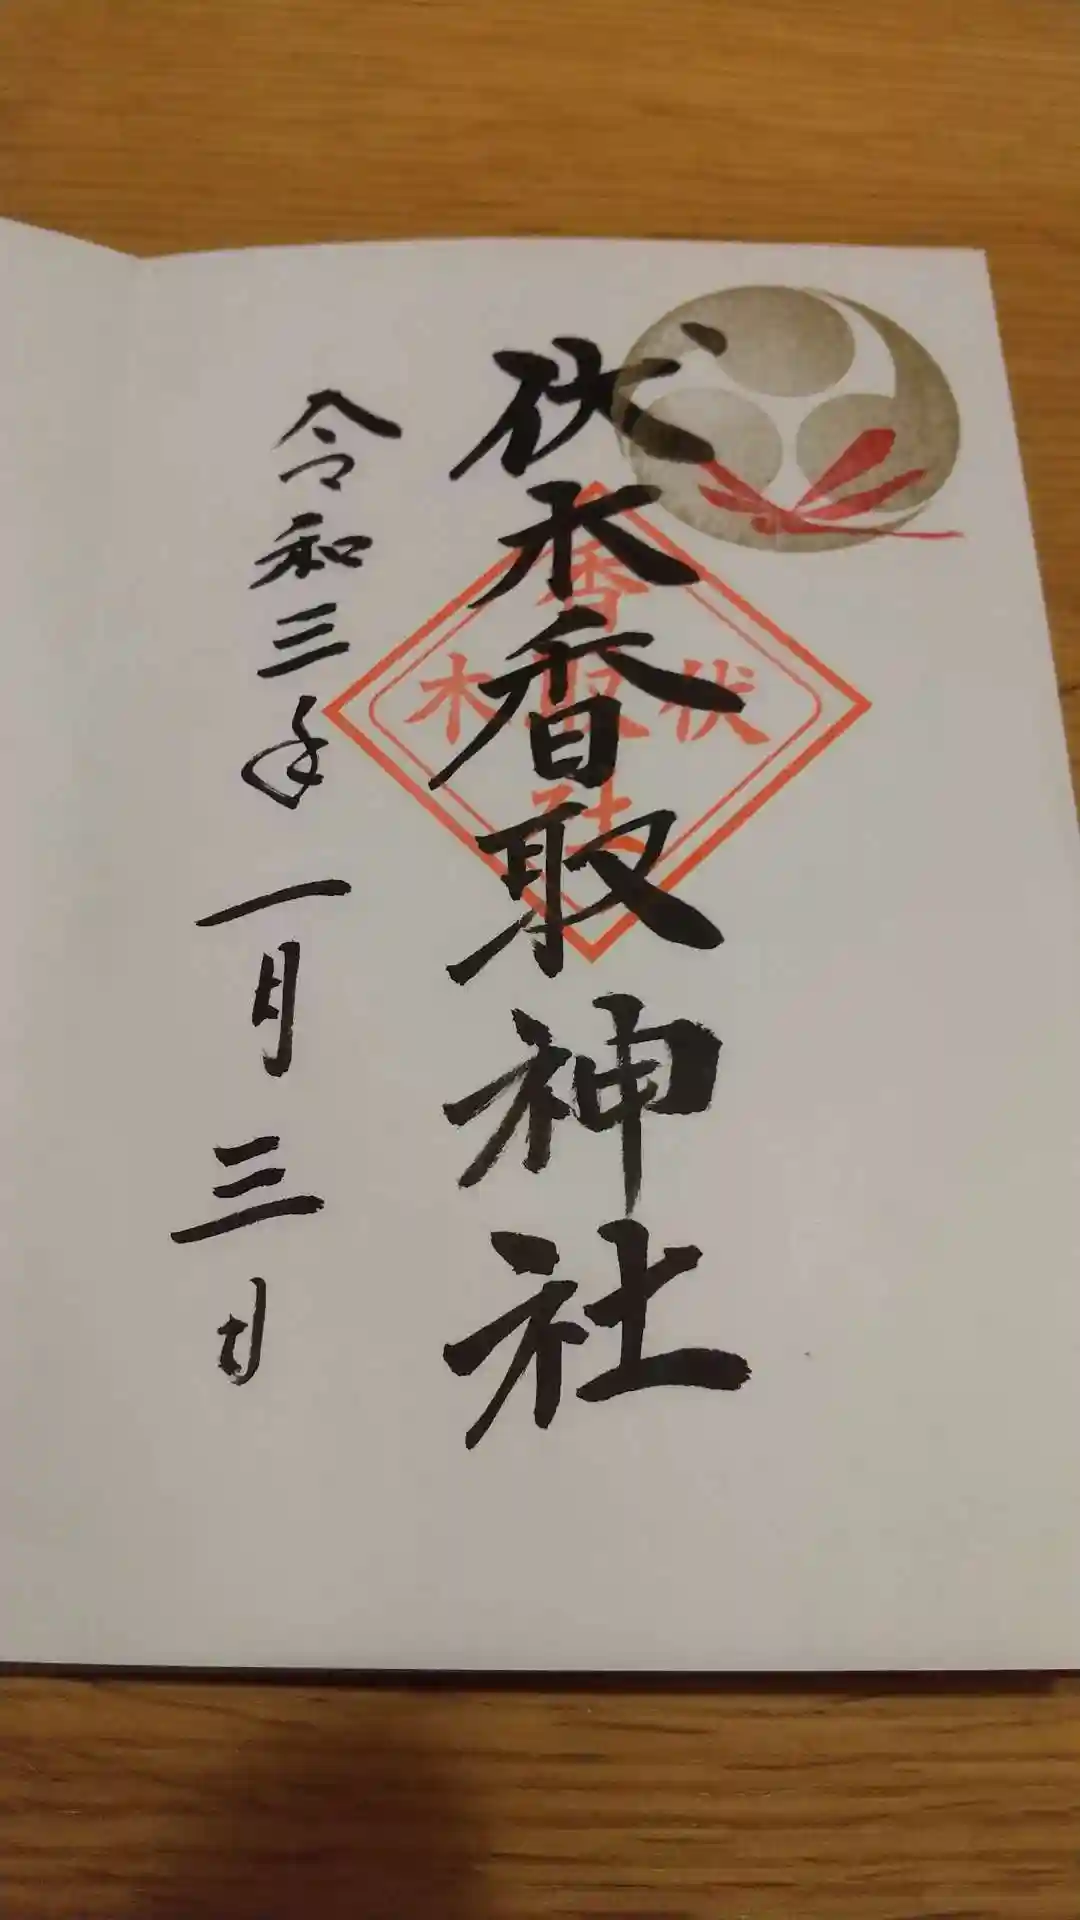 伏木香取神社
令和三年一月三日
香
伏取木
社